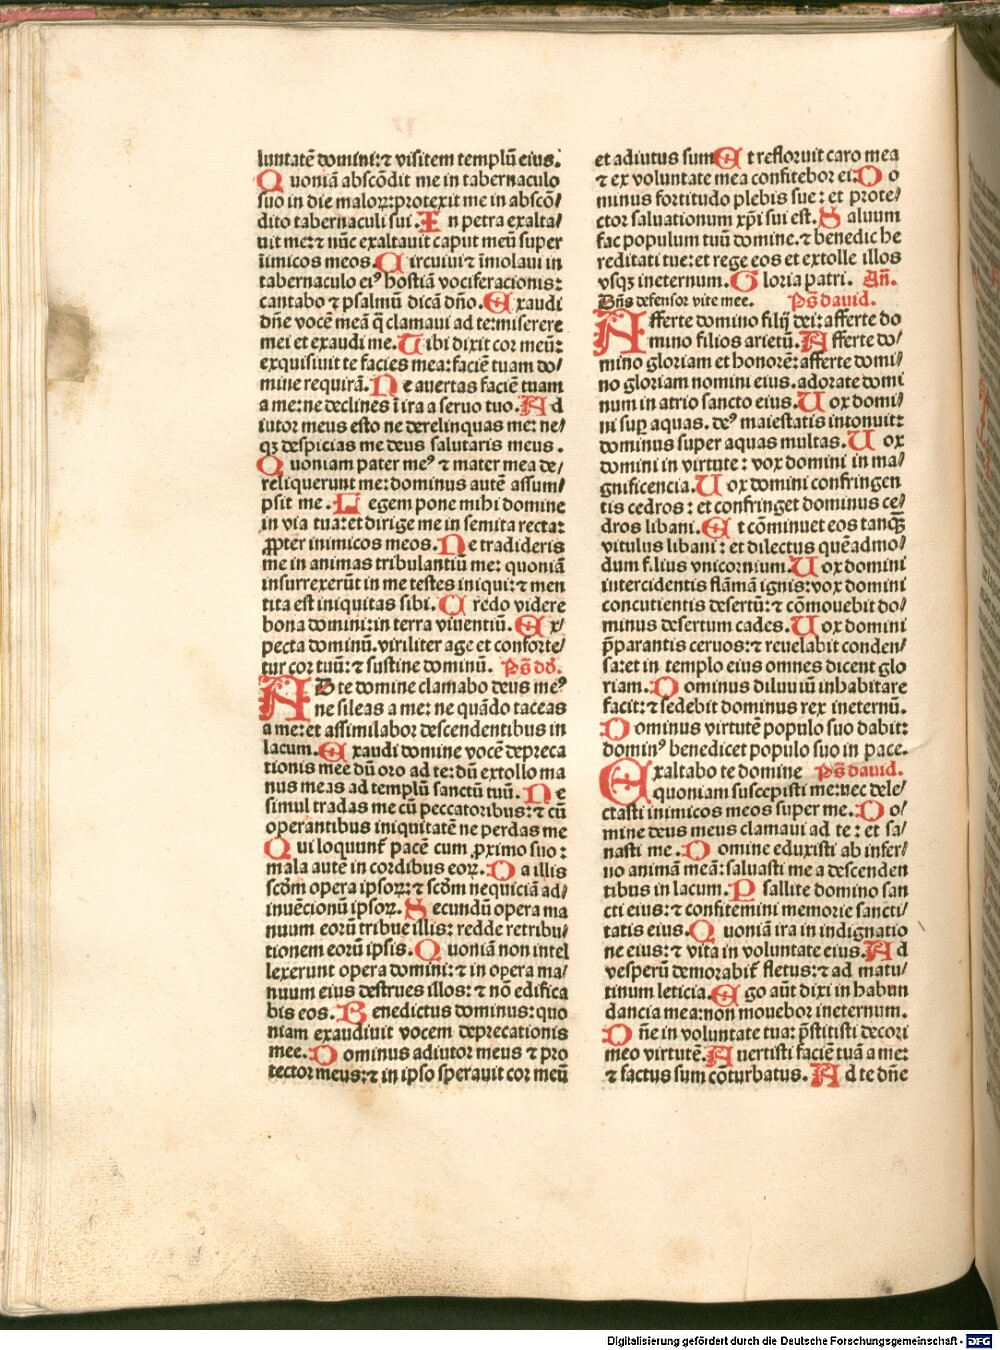 luntatē domini:⁊ visitem templū eius.
Quoniā abscōdit me in tabernaculo
suo in die maloꝝ:protexit me in abscō/
dito tabernaculi sui. In petra exalta/
uit me:⁊ nūc exaltauit caput meū super
īimicos meos. Circuiui ⁊ īmolaui in
tabernaculo eiꝰ hostiā vociferacionis:
cantabo ⁊ psalmū dicā dn̄o. Exaudi
dn̄e vocē meā q̄ clamaui ad te:miserere
mei et exaudi me. Tibi dixit cor meū:
exquisiuit te facies mea: faciē tuam do/
mine requirā. Ne auertas faciē tuam
a me:ne declines ī ira a seruo tuo. Ad
iutor meus esto ne derelinquas me: ne/
qꝫ despicias me deus salutaris meus.
Quoniam pater meꝰ ⁊ mater mea de/
reliquerunt me: dominus autē assum/
psit me. Legem pone mihi domine
in via tua:et dirige me in semita recta:
ꝓpter inimicos meos. Ne tradideris
me in animas tribulantiū me: quoniā
insurrexerūt in me testes iniqui:⁊ men
tita est iniquitas sibi. Credo videre
bona domini:in terra viuentiū. Ex/
pecta dominū. viriliter age et conforte/
tur cor tuū:⁊ sustine dominū. Ps̄ dd̄.
AB te domine clamabo deus meꝰ
ne sileas a me: ne quādo taceas
a me:et assimilabor descendentibus in
lacum. Exaudi domine vocē depreca
tionis mee dū oro ad te:dū extollo ma
nus meas ad templū sanctū tuū. Ne
simul tradas me cū peccatoribus:⁊ cū
operantibus iniquitatē ne perdas me
Qui loquunt᷑ pacē cum ꝓximo suo:
mala autē in cordibus eoꝝ. Da illis
scd̄m opera ipsoꝝ:⁊ scd̄m nequiciā ad/
inuēcionū ipsoꝝ. Secundū opera ma
nuum eorū tribue illis: redde retribu/
tionem eorū ipsis. Quoniā non intel
lexerunt opera domini:⁊ in opera ma/
nuum eius destrues illos: ⁊ nō edifica
bis eos. Benedictus dominus: quo
niam exaudiuit vocem deprecationis
mee. Dominus adiutor meus ⁊ pro
tector meus:⁊ in ipso sperauit cor meū
et adiutus sum Et refloruit caro mea
⁊ ex voluntate mea confitebor ei. Do
minus fortitudo plebis sue: et prote/
ctor saluationum xp̄i sui est. Saluum
fac populum tuū domine.⁊ benedic he
reditati tue:et rege eos et extolle illos
vsqꝫ ineternum. Gloria patri. An̄.
Dn̄s defensor vite mee. Ps̄ dauid.
Afferte domino filij dei: afferte do
mino filios arietū. Afferte do/
mino gloriam et honorē: afferte domi/
no gloriam nomini eius. adorate domi
num in atrio sancto eius. Uox domi/
ni suꝑ aquas. deꝰ maiestatis intonuit:
dominus super aquas multas. Uox
domini in virtute: vox domini in ma/
gnificencia. Uox domini confringen
tis cedros: et confringet dominus ce/
dros libani. Et cōminuet eos tanqꝫ
vitulus libani: et dilectus quēadmo/
dum filius vnicornium. Uox domini
intercidentis flāmā ignis: vox domini
concutientis desertū:⁊ cōmouebit do/
minus desertum cades. Uox domini
p̄parantis ceruos:⁊ reuelabit conden/
sa:et in templo eius omnes dicent glo
riam. Dominus diluuiū inhabitare
facit:⁊ sedebit dominus rex ineternū.
Dominus virtutē populo suo dabit:
dominꝰ benedicet populo suo in pace.
Exaltabo te domine Ps̄ dauid.
quoniam suscepisti me:nec dele/
ctasti inimicos meos super me. Do/
mine deus meus clamaui ad te: et sa/
nasti me. Domine eduxisti ab infer/
no animā meā: saluasti me a descenden
tibus in lacum. Psallite domino san
cti eius:⁊ confitemini memorie sancti/
tatis eius. Quoniā ira in indignatio
ne eius:⁊ vita in voluntate eius. Ad
vesperū demorabit᷑ fletus:⁊ ad matu/
tinum leticia. Ego aūt dixi in habun
dancia mea:non mouebor ineternum.
Dn̄e in voluntate tua: p̄stitisti decori
meo virtutē. Auertisti faciē tuā a me:
⁊ factus sum cōturbatus. Ad te dn̄e
Digitalisierung gefördert durch die Deutsche Forschungsgemeinschaft - DFG